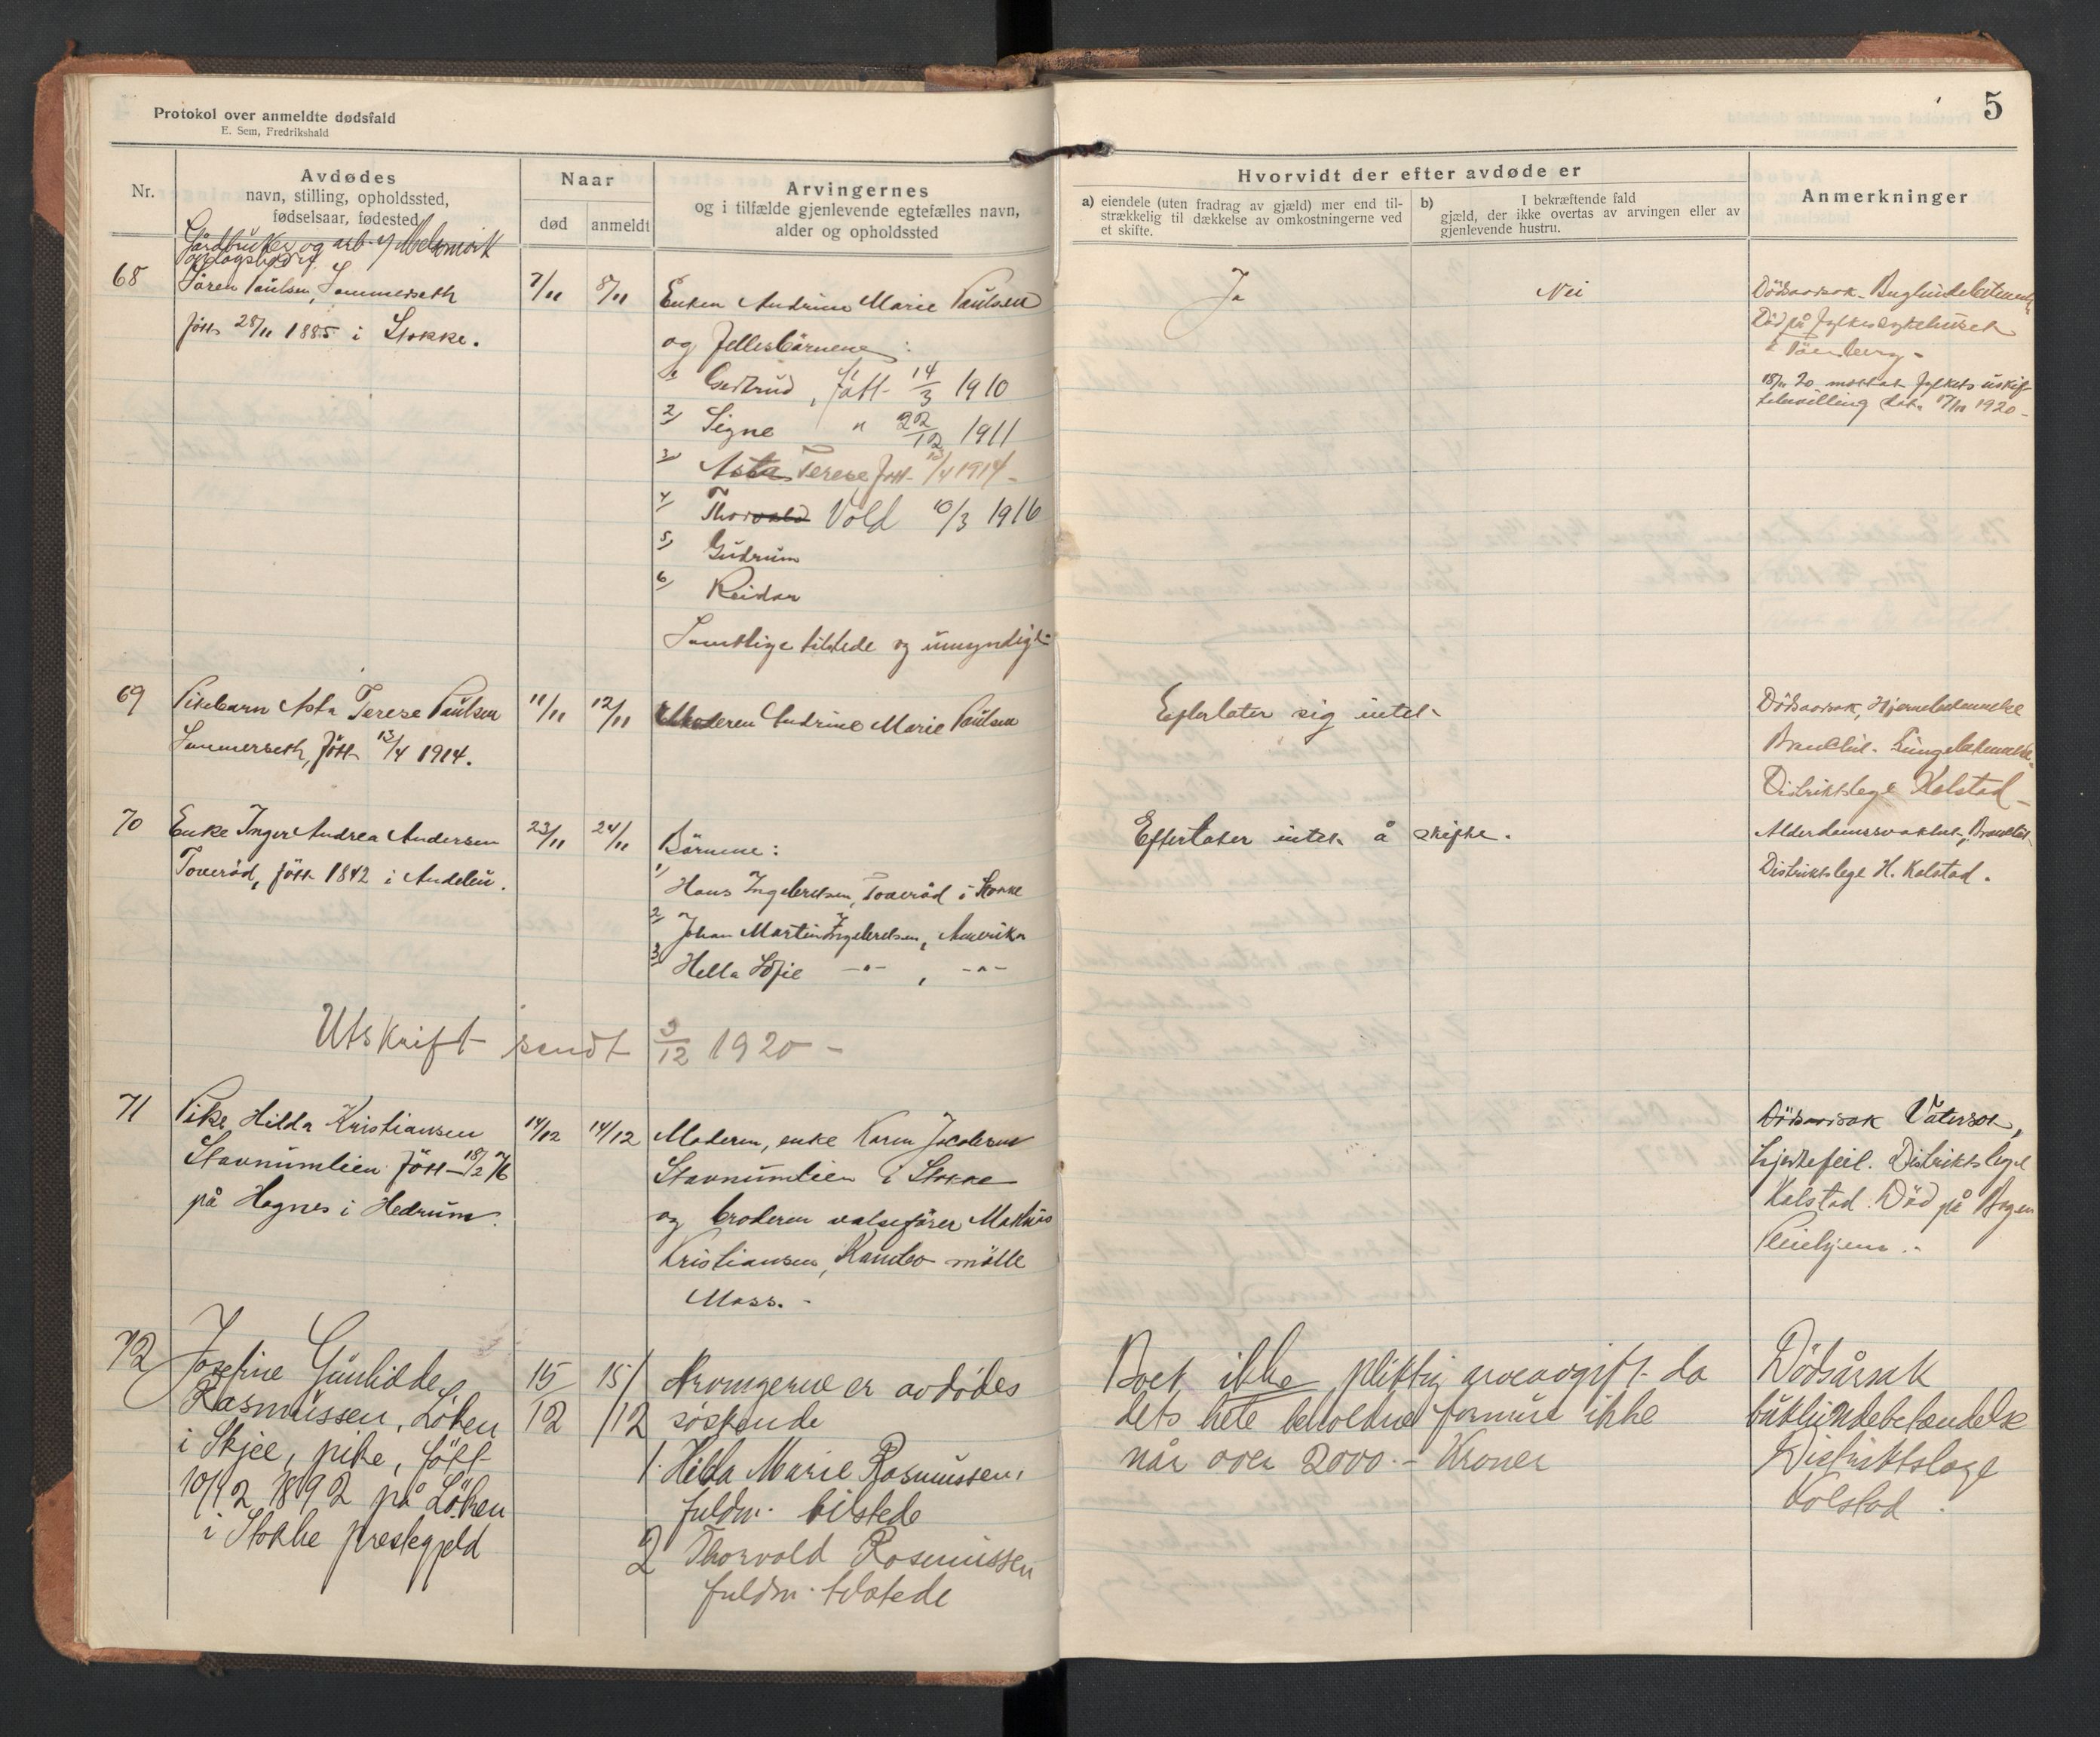 Protokol over anmeldte dødsfald
E. Sem, Fredrikshald
5
Nr.
Avdødes
navn, stilling, opholdssted,
fødselsaar, fødested
Naar
død
anmeldt
Arvingernes
og i tilfælde gjenlevende egtefælles navn,
alder og opholdssted
Hvorvidt der efter avdøde er
a) eiendele (uten fradrag av gjæld) mer end til-
strækkelig til dækkelse av omkostningerne ved
et skifte.
b) I bekræftende fald
gjæld, der ikke overtas av arvingen eller av
gjenlevende hustru.
Anmerkninger
Gårdbruker og arb. 
68
Sören Paulsen, Sommerseth
föt 28/11 1885 i Stokke.
7/11
8/11
Enken Andrine Marie Paulsen
og fellesbörnene:
1) Gertrud, födt 14/3 1910
2) Signe " 22/12 1911
3) Asta Terese födt 13/4 1914
4) Thorvald Vold 10/3 1916
5) Gudrun
6) Reidar
Samtlige tilstede og umyndige
Ja
Nei
Dödsaarsak
Död på fylkessykehuset
i Tönsberg
18/11 20 mottat fylkets uskif-
tebevilling dat. 17/11 1920
69
Pikebarn Asta Terese Paulsen
Sommerseth, födt 13/4 1914.
11/11
12/11
Moderen Andrine Marie Paulsen
Efterlater sig intet
Dödsaarsak, Hjernebetennelse
Distriktslege Kolstad
70
Enke Inger Andrea Andersen
Toveröd, födt 1842 i Andebu.
23/11
24/11
Börnene:
1) Hans Ingebretsen, Toveröd i Stokke
2) Johan Martin Ingebretsen, Amerika
3) Hella Sofie -"- , -"-
Efterlater intet å skifte.
Alderdomssvakhet,
Distriktslege H. Kolstad.
Utskrift sendt 3/12 1920 -
71
Pike Hilda Kristiansen
Stavnumlien födt 18/2 76
på Hognes i Hedrum.
14/12
14/12
Moderen, enke Karen Jacobsen
Stavnumlien i Stokke
og broderen valsefører Mathias
Kristiansen, Kambo mölle
Moss. -
Dödsaarsak Vatersot,
hjertefeil. Distriktslege
Kolstad. Död på Bogen
Pleiehjem.
72
Josefine Gunhilde
Rasmussen, Löken
i Skjee, pike, födt
10/12 1892 på Löken
i Stokke prestegjeld
15/12
15/12
Arvingerne er avdødes
søskende
1. Hilda Marie Rasmussen,
fuldm. tilstede
2 Thorvald Rasmussen
fuldm. tilstede
Boet ikke pliktig arveavgift da
dets hele beholdne formue ikke
når over 2000.- Kroner
Dödsårsak
bukhindebetændelse
Distriktslæge
Kolstad.